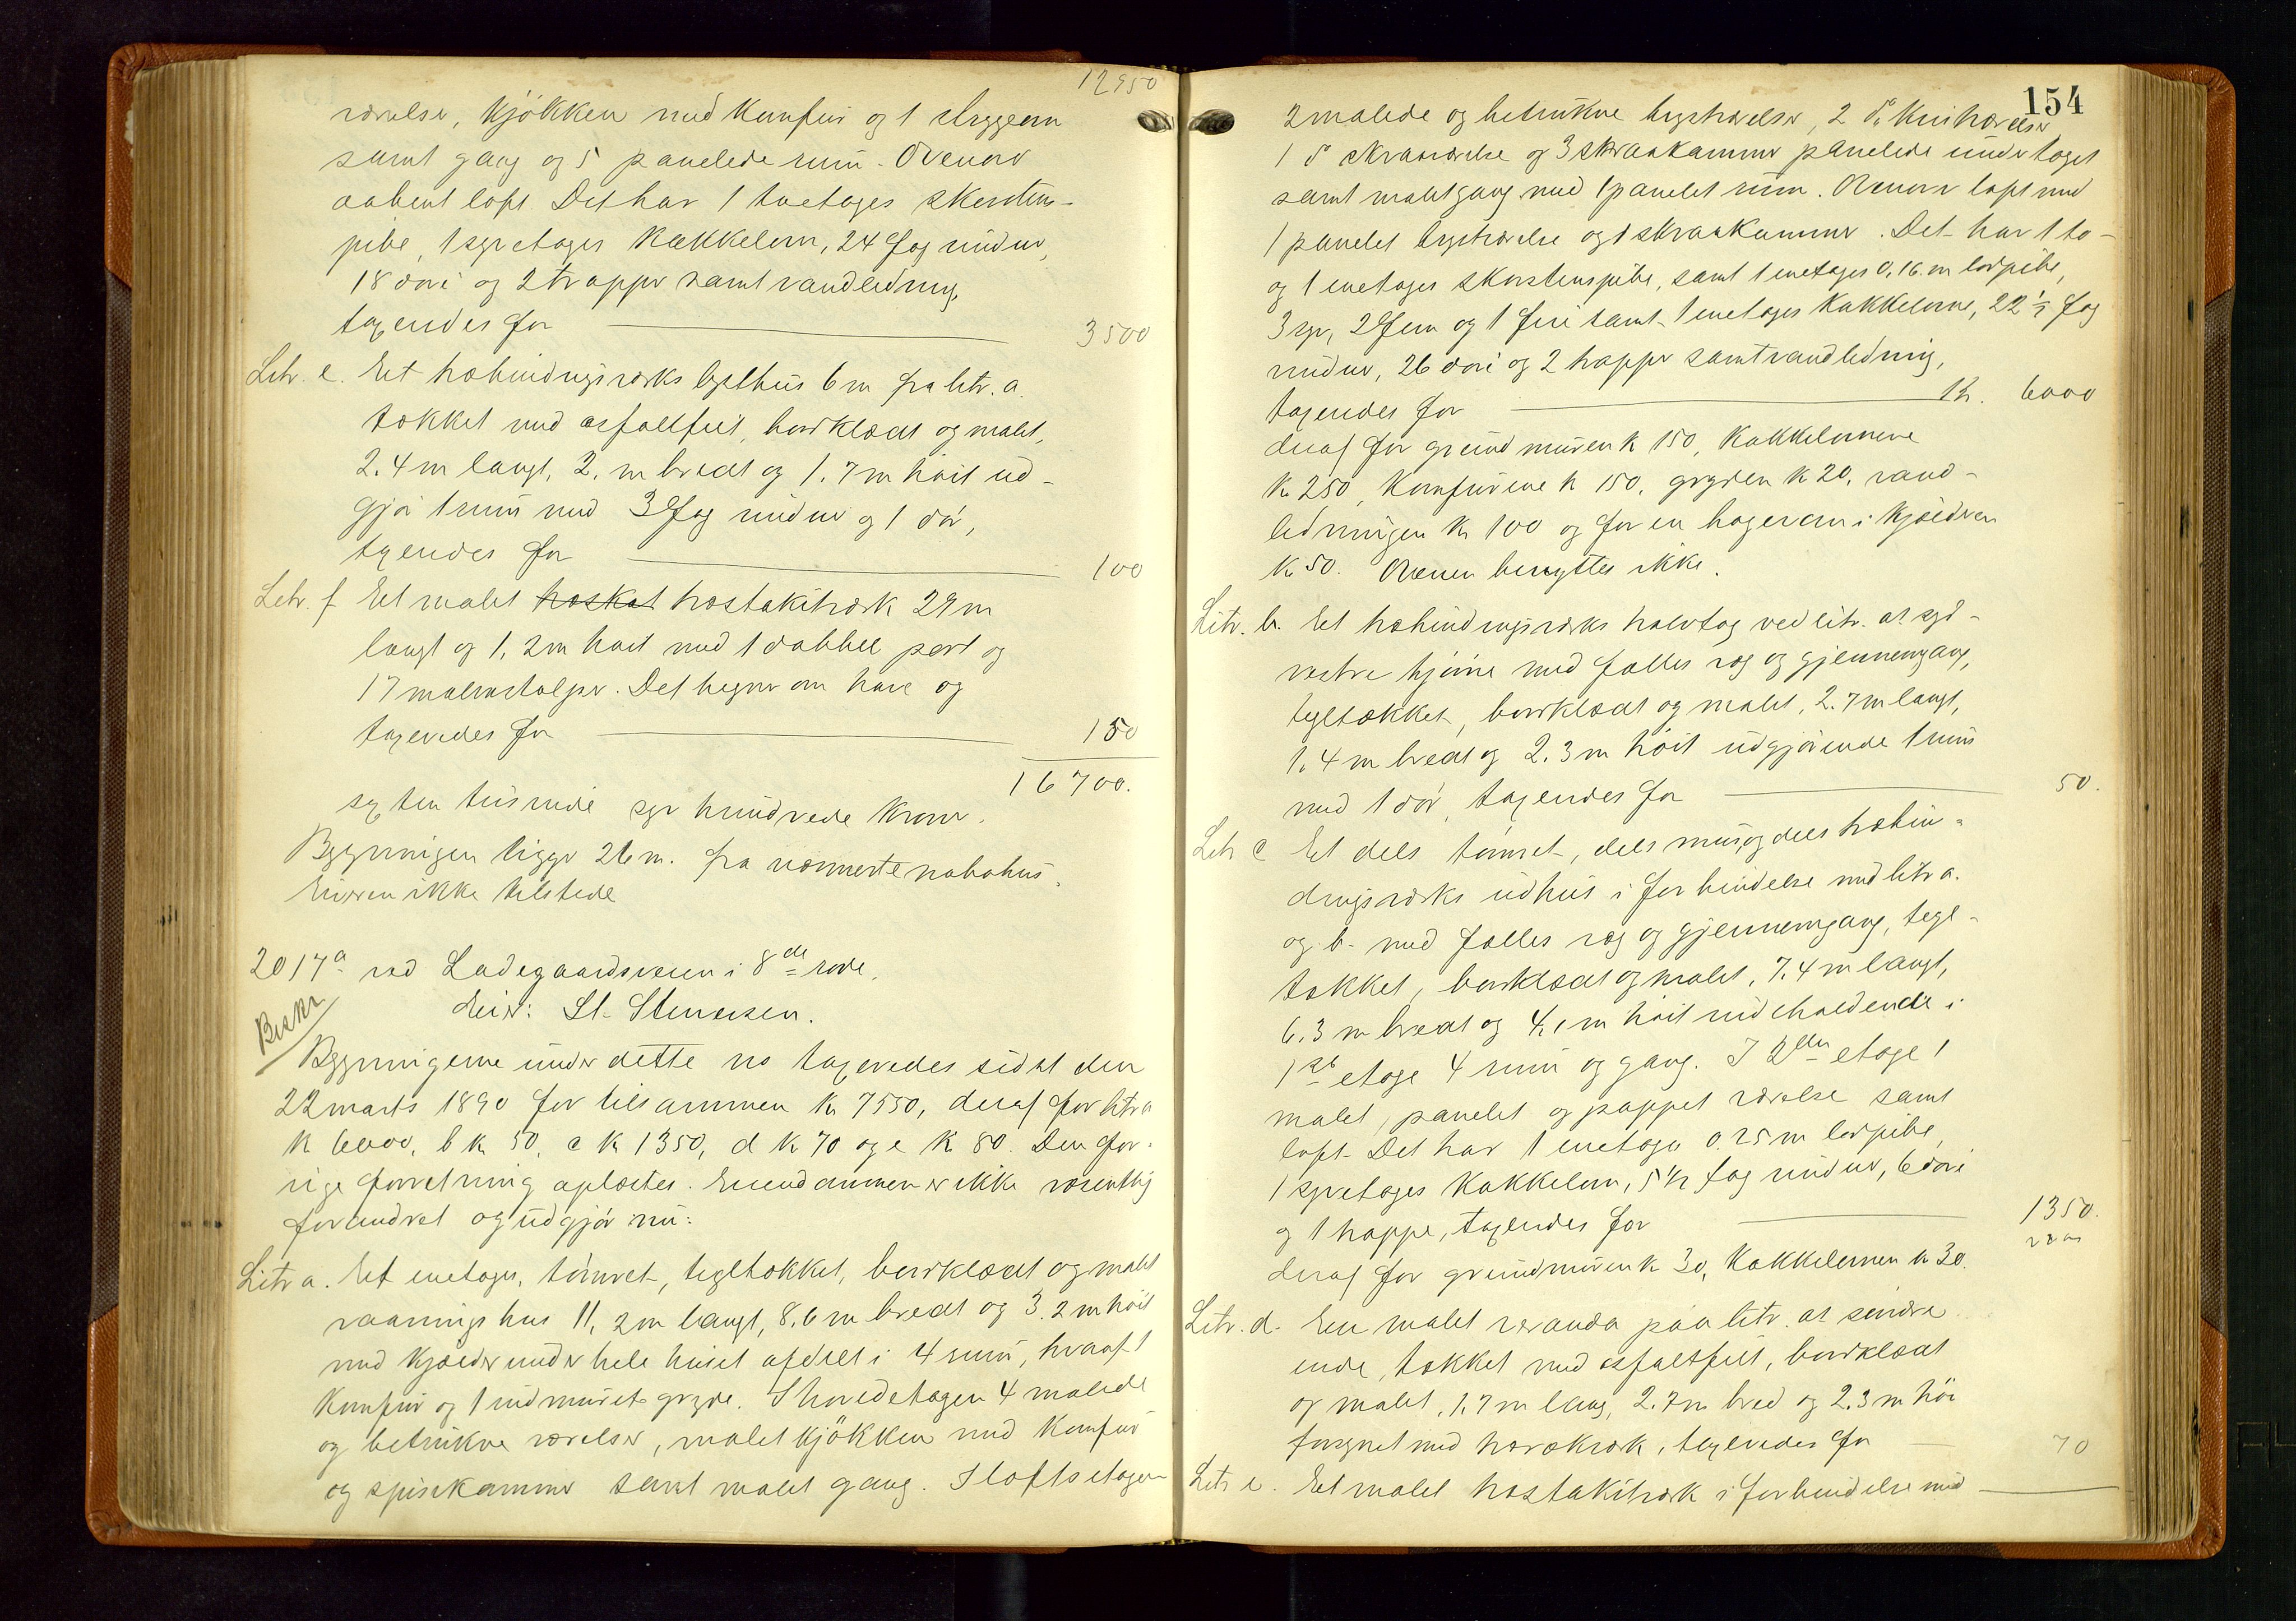 12950
værelse, kjøkken med komfur og 1 bryggeovn
samt gang og 5 panelede rum. Ovenover
aabent loft. Det har 1 toetages skorstens-
pibe, 1 syretages kakkelovn, 24 fag vinduer,
18 döre og 2 trapper samt vandledning,
taxeredes for 3500
Litr. e. Et træbindingsværks lysthus 6 m fra litr. a.
tækket med asfaltfilt, bordklædt og malet,
2.4 m langt, 2. m bredt og 1.7 m höit ud-
gjör 1 rum med 3 fag vinduer og 1 dör,
taxeredes for 100
Litr. f Et malet træstakitværk 29 m
langt og 1,2 m höit med 1 dobbel port og
17 malmstolper. Det hegner om have og
taxeredes for 150
16700.
sexten tusinde syv hundrede kroner.
Bygningen ligger 26 m. fra nærmeste nabohus.
Eieren ikke tilstede
2017a ved Ladegaardsveien i 8de rode.
Beskr
Eier: St. Stenersen.
Bygningerne under dette no taxeredes sidst den
22 marts 1890 for tilsammen k 7550, deraf for litr a
k 6000, b k 50, c k 1350, d k 70 og e k 80. Den for-
rige forretning oplæstes. Eiendommen er ikke væsentlig
forandret og udgjör nu:
Litr a. Et enetages, tömret, tegltækket, bordklædt og malet
vaaningshus 11,2 m langt, 8.6 m bredt og 3.2 m höit
med kjælder under hele huset afdelt i 4 rum, hvoraf 1
komfur og 1 indmuret gryde. I hovedetagen 4 malede
og betrukne værelser, malet kjökken med komfur
og spisekammer samt malet gang. I loftsetagen
154
2 malede og betrukne kvistværelser, 2 do kvistværelser
1 do skraaværelse og 3 skraakammer panelede under taget
samt malet gang med 1 panelet rum. Ovenover loft med
1 panelet kvistværelse og 1 skraakammer. Det har 1 to-
og 1 enetages skorstenspibe, samt 1 enetages 0,16 m lerpibe,
3 syv, 2 fem og 1 fire samt 1 enetages kakkelovne, 22 1/2 fag
vinduer, 26 döre og 2 trapper samt vandledning,
taxeredes for k. 6000
deraf for grundmuren k 150, kakkelovnene
k 250, komfurene k 150, gryden k 20, vand-
ledningen k 100 og for en bagerovn i kjælderen
k 50. Ovnen benyttes ikke.
Litr. b. Et træbindingsværks halvtag ved litr. as syd-
vestre hjörne med fælles væg og gjennemgang,
tegltækket, bordklædt og malet, 2.7 m langt,
1.4 m bredt og 2.3 m höit udgjörende 1 rum
med 1 dör, taxeredes for 50.
Litr c Et dels tömret, dels mur, og dels træbin-
dingsværks udhus i forbindelse med litr a.
og b. med fælles væg og gjennemgang, tegl-
tækket, bordklædt og malet, 7.4 m langt,
6.3 m bredt og 4,1 m höit indeholdende i
1ste etage 4 rum og gang. I 2den etage 1
malet, panelet og pappet værelse samt
loft. Det har 1 enetages 0.25 m lerpibe,
1 syvetages kakkelovn, 5 1/2 fag vinduer, 6 döre
og 1 trappe, taxeredes for 1350.
deraf for grundmuren k 30, kakkelovnen k 30.
Litr. d. En malet veranda paa litr. as söndre
ende, tækket med asfaltfilt, bordklædt
og malet, 1.7 m lang, 2.7 m bred og 2.3 m höi
forsynet med trærækværk, taxeredes for 70
Litr e. Et malet træstakitværk i forbindelse med